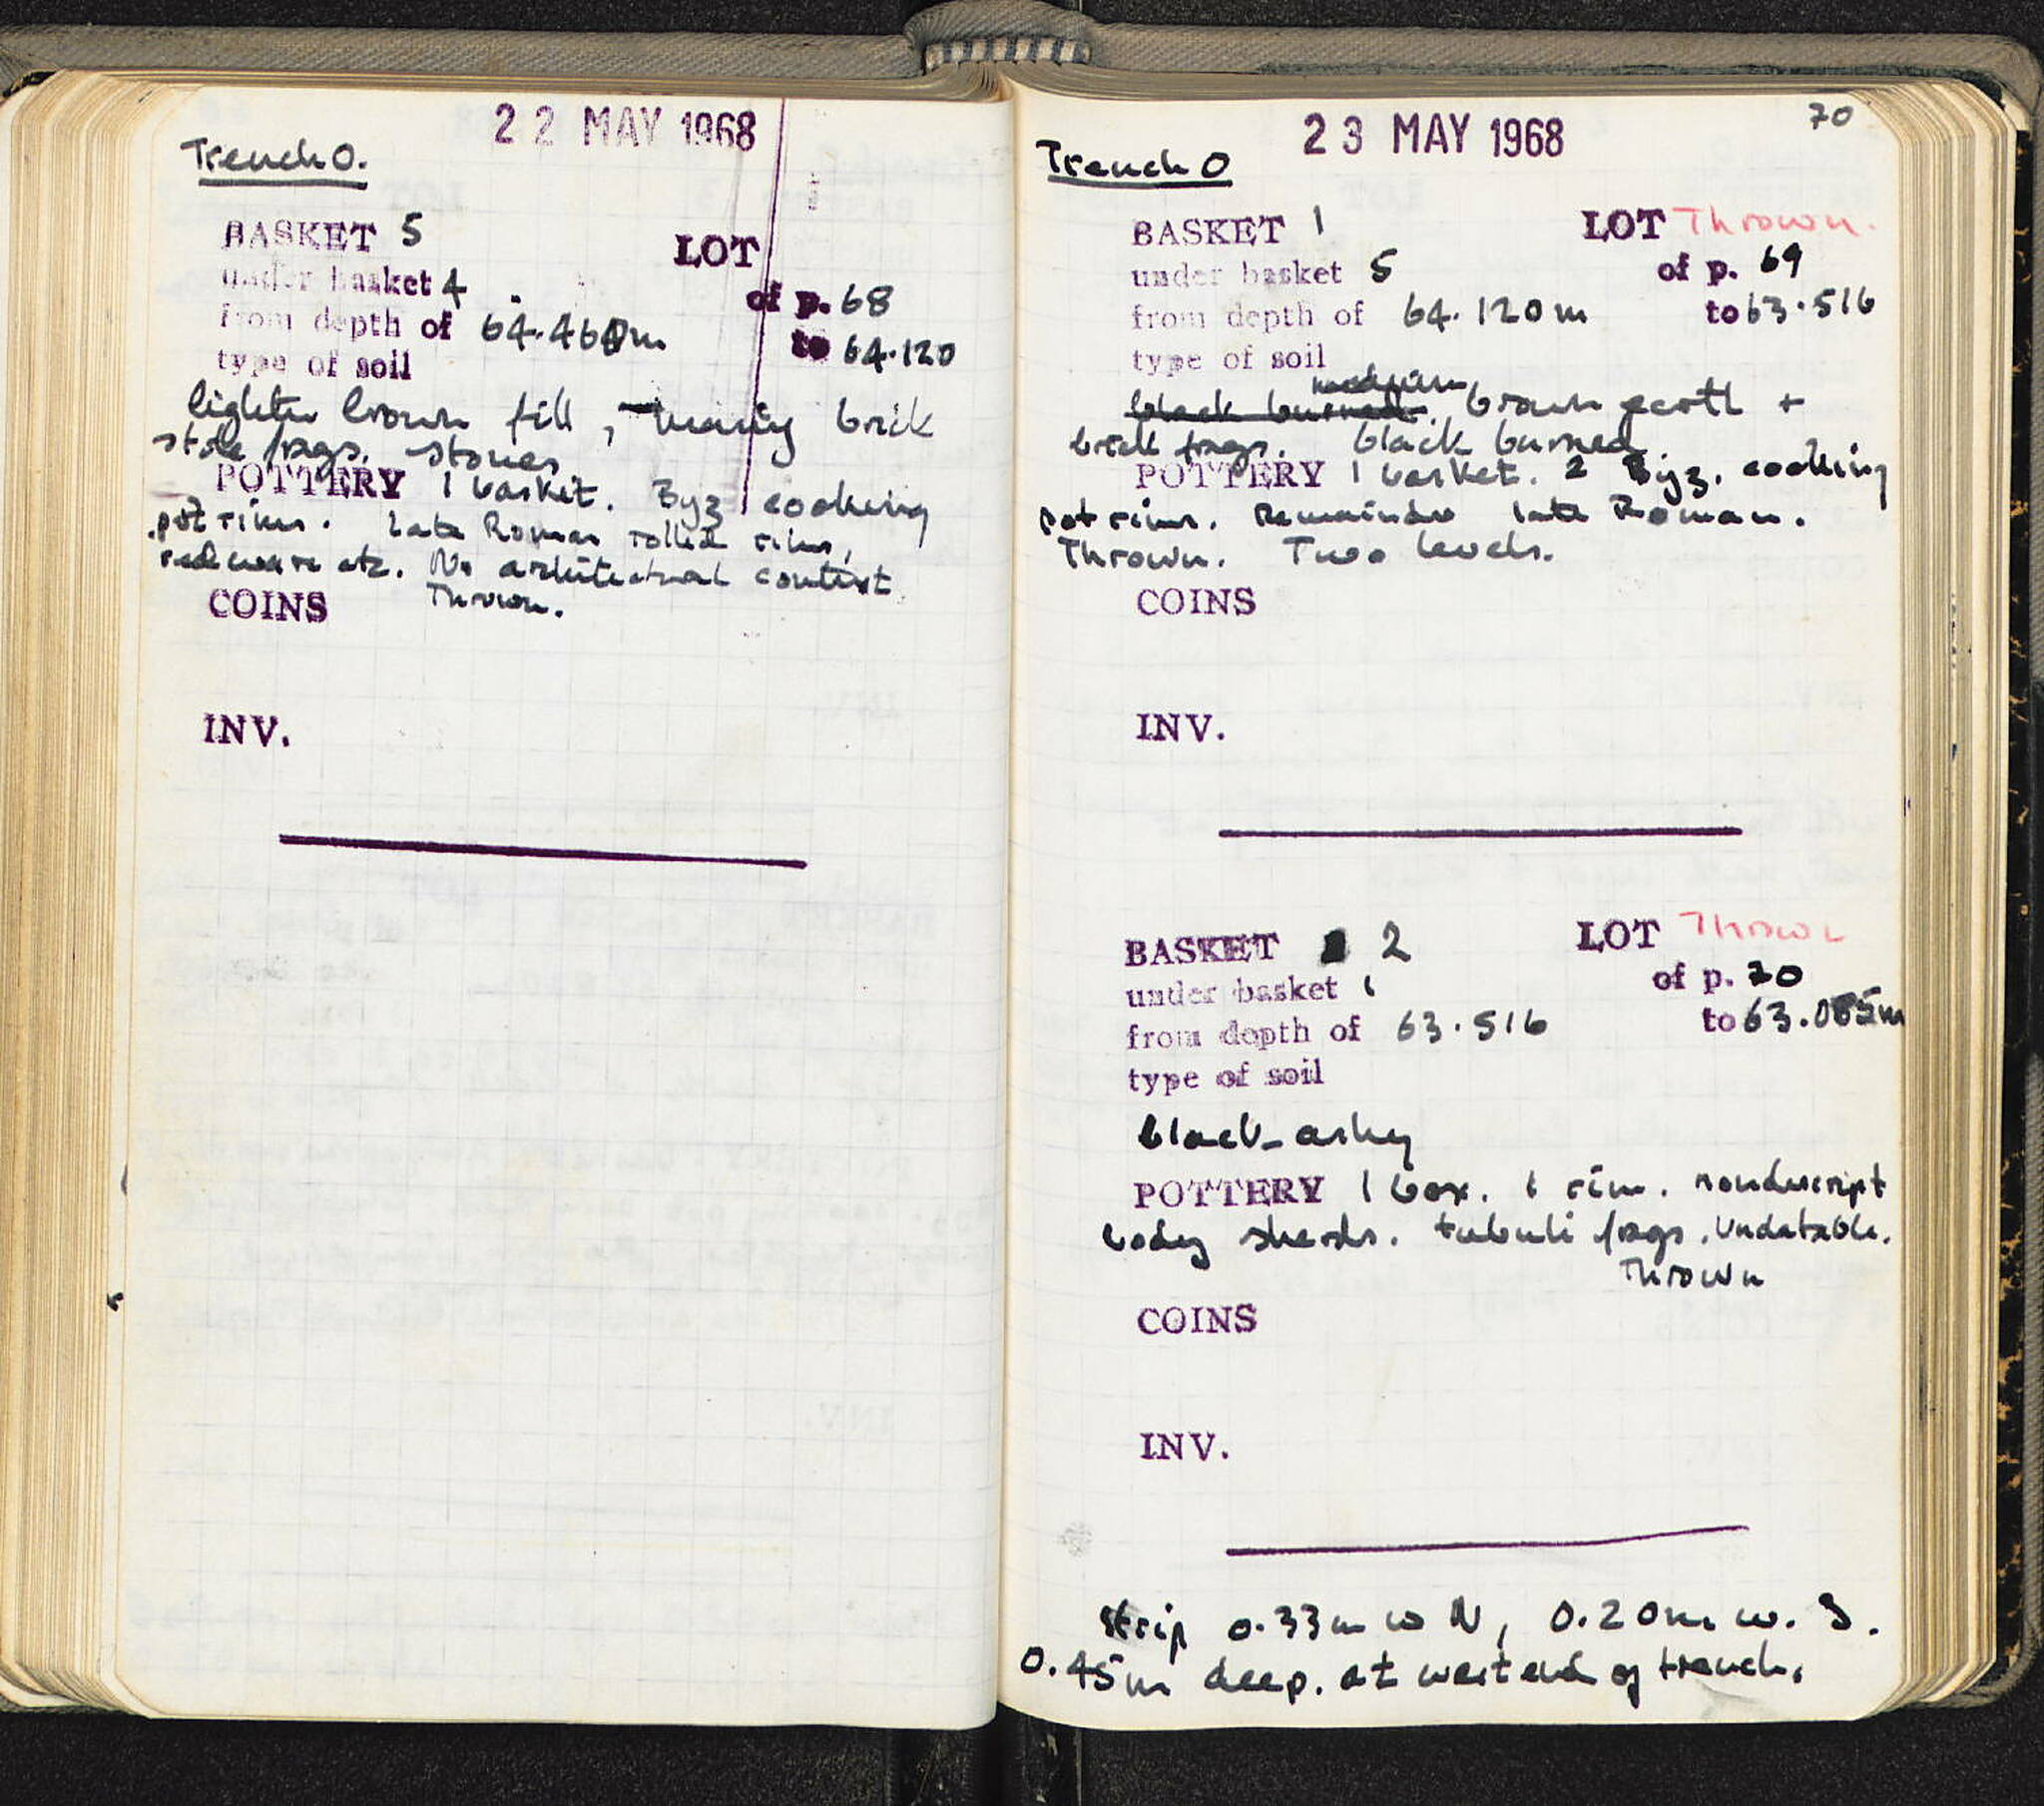 22 MAY 1968
Trench O.
BASKET 5
LOT
under basket 4
of p. 68
from depth of 64.460m
to 64.120
type of soil
lighter brown fill, many brick
stone frags. stones
POTTERY 1 basket. Byz cooking
pot rims. Late Roman rolled rims,
redware etc. No architectural context
Thrown.
COINS
INV.
70
23 MAY 1968
Trench O
BASKET 1
LOT Thrown.
under basket 5
of p. 69
from depth of 64.120m
to 63.516
type of soil
medium
black burned. brown earth +
brick frags. black burned
POTTERY 1 basket. 2 Byz. cooking
pot rims. Remainder late Roman.
Thrown. Two levels.
COINS
INV.
BASKET 2
LOT Thrown
under basket 1
of p. 70
from depth of 63.516
to 63.085m
type of soil
black ashy
POTTERY 1 box. 1 rim. nondescript
body sherds. tubuli frags. Undatable.
Thrown
COINS
INV.
Strip 0.33m w N, 0.20m w. S.
0.45m deep. at west end of trench.